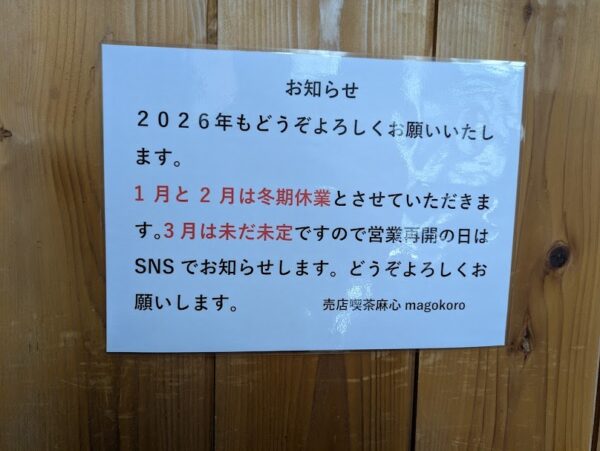 お知らせ
２０２６年もどうぞよろしくお願いいたし
ます。
1 月と 2 月は冬期休業とさせていただきま
す。3 月は未だ未定ですので営業再開の日は
SNS でお知らせします。どうぞよろしくお
願いします。 売店喫茶麻心 magokoro